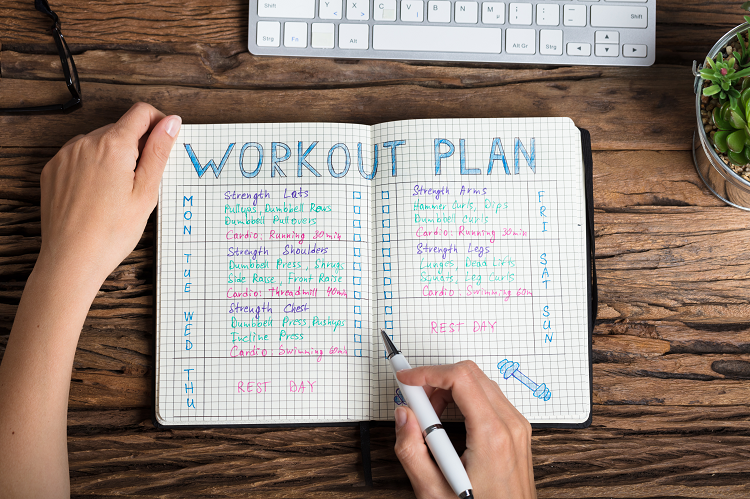 Shift Y X C V B N M , . - Shift
Strg Alt Alt Gr Strg
WORKOUT PLAN
MON
Strength Lats
Pullups, Dumbbell Rows
Dumbbell Pullovers
Cardio: Running 30min
TUE
Strength Shoulders
Dumbbell Press, Shrugs
Side Raise, Front Raise
Cardio: Threadmill 40min
WED
Strength Chest
Dumbbell Press, Pushups
Incline Press
Cardio: Swimming 60min
THU
REST DAY
FRI
Strength Arms
Hammer Curls, Dips
Dumbbell Curls
Cardio: Running 30min
SAT
Strength Legs
Lunges, Dead Lifts
Squats, Leg Curls
Cardio: Swimming 60m
SUN
REST DAY